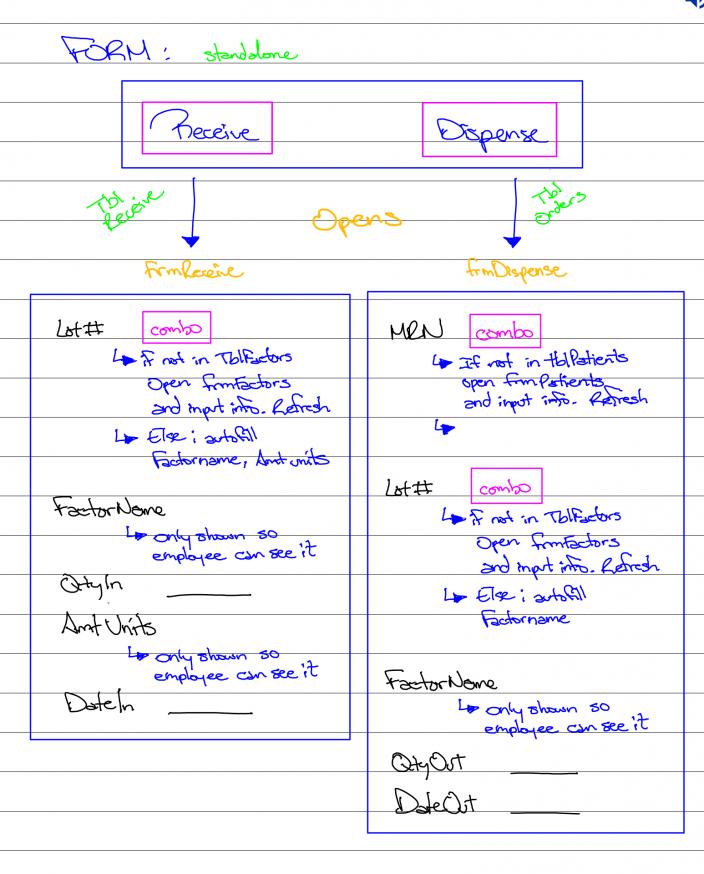 FORM: standalone
Receive
Dispense
Tbl
Receive
Opens
Tbl
Orders
frmReceive
Lot# combo
↳ if not in TblFactors
Open frmFactors
and input info. Refresh
↳ Else; autofill
Factorname, Amt units
FactorName
↳ only shown so
employee can see it
QtyIn
Amt Units
↳ only shown so
employee can see it
DateIn
frmDispense
MRN combo
↳ If not in tblPatients
open frmPatients
and input info. Refresh
↳
Lot# combo
↳ if not in TblFactors
Open frmFactors
and input info. Refresh
↳ Else; autofill
Factorname
FactorName
↳ only shown so
employee can see it
QtyOut
DateOut